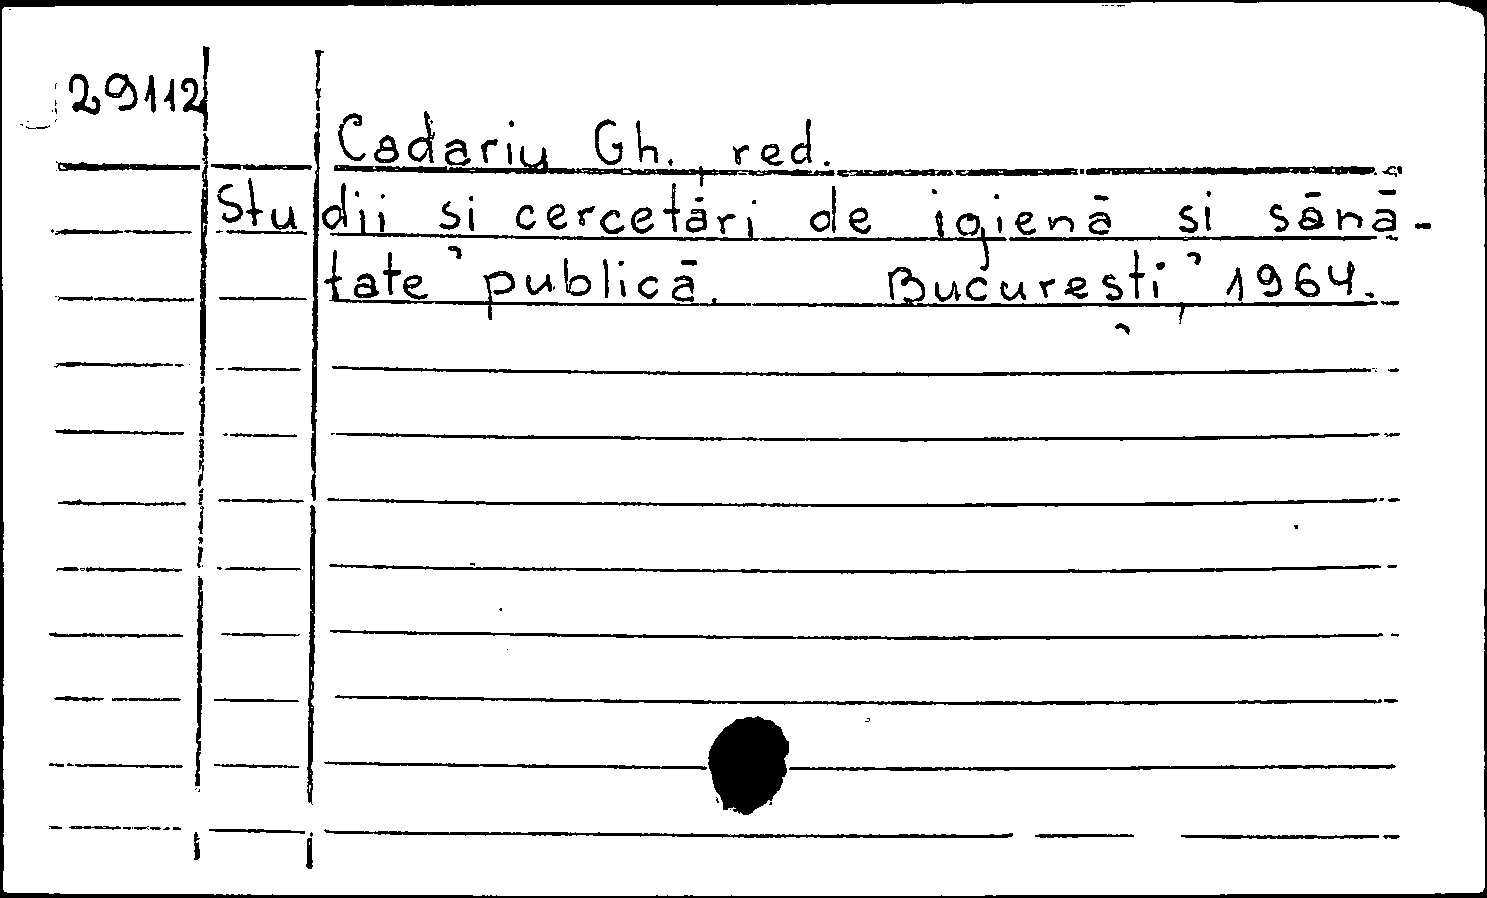 29112
Cadariu Gh., red.
Studii și cercetāri de igienā și sānā-
tate publicā. București, 1964.